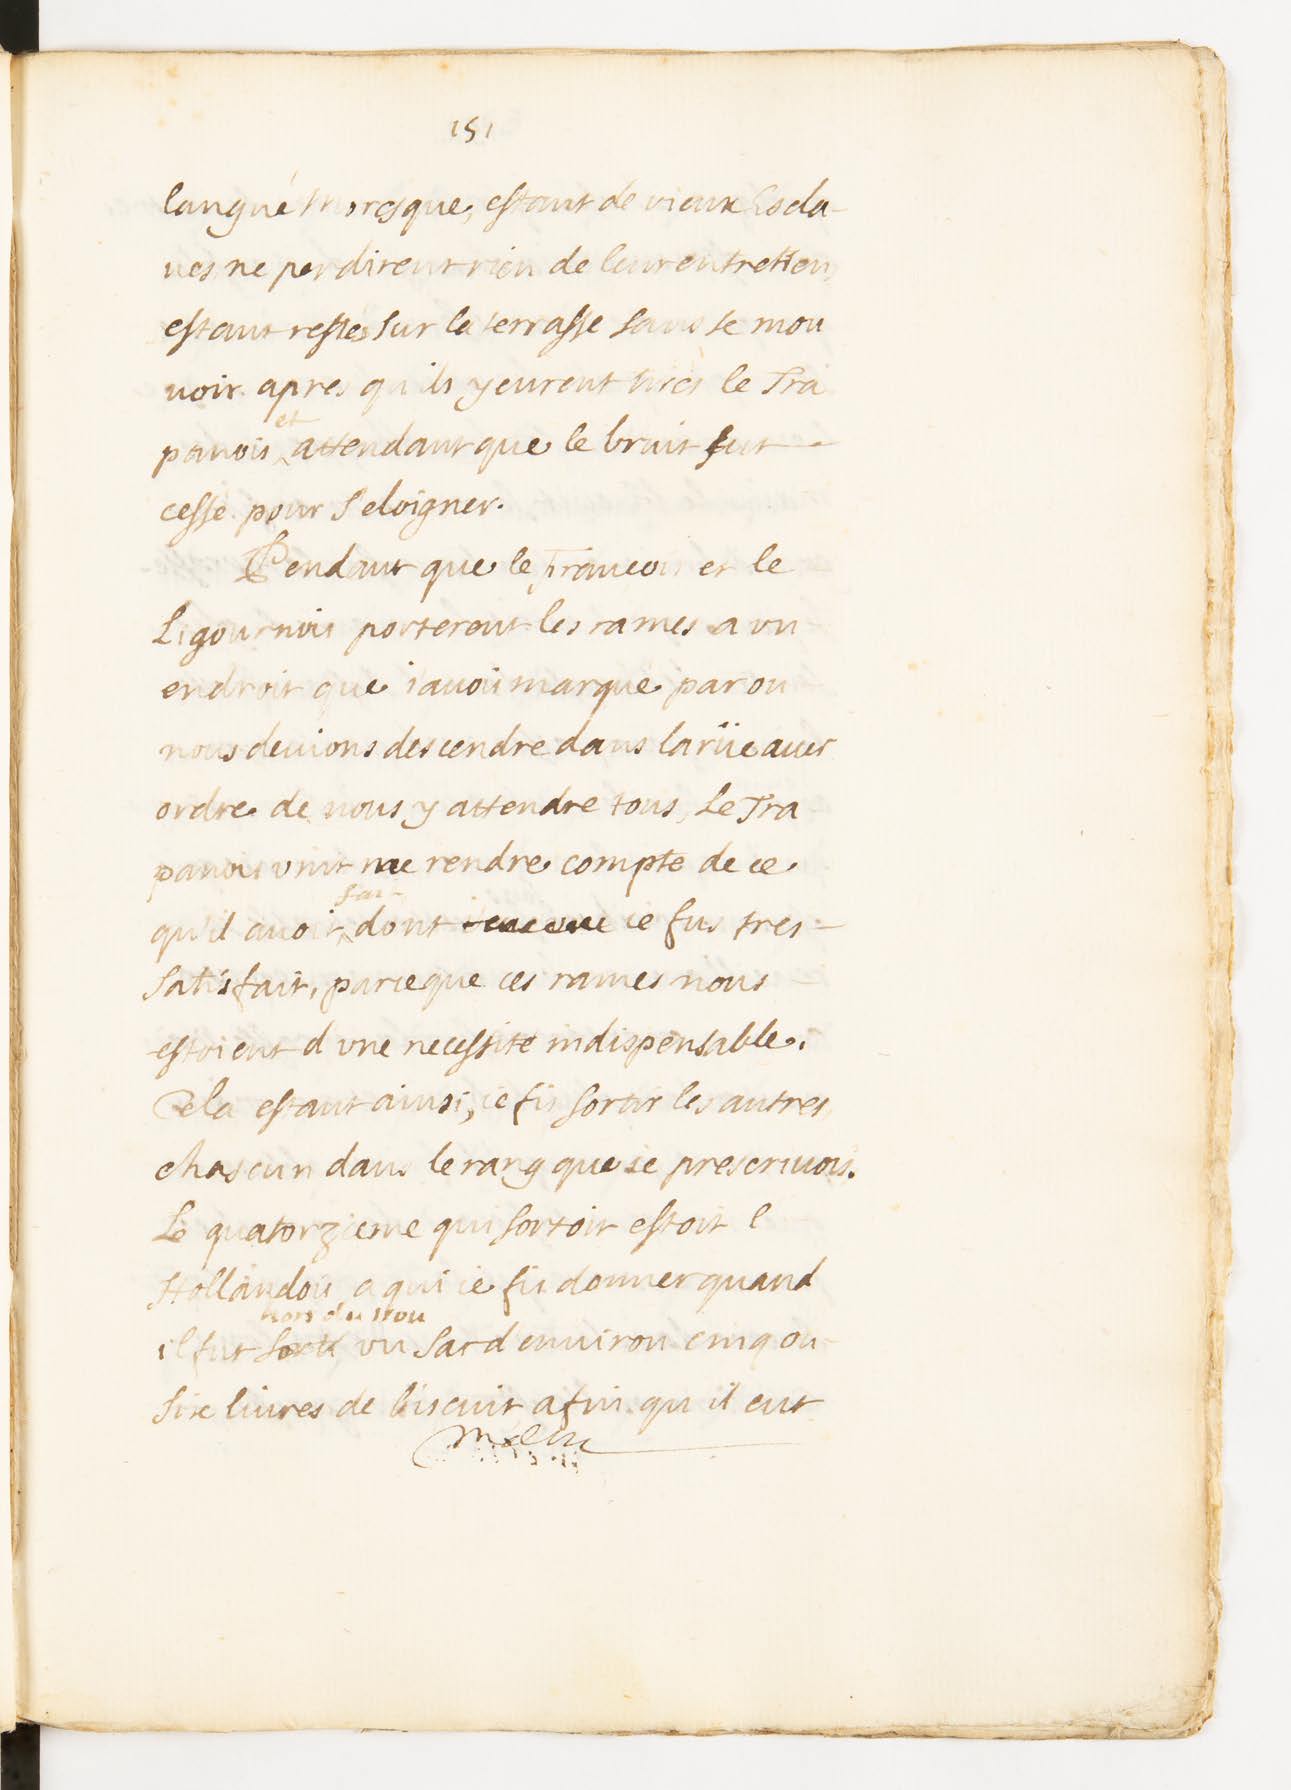 151
langue moresque, estant de vieux Escla-
ues ne perdirent rien de leur entretien
estant restés sur la terrasse sans se mou
uoir apres qu ils y eurent tirés le Tra
et
panois attendant que le bruit fut
cessé pour s'eloigner.
Pendant que le Francois et le
Ligournois porterent les rames a vn
endroit que i auois marqué par ou
nous deuions descendre dans la rüe auec
ordre de nous y attendre tous, Le Tra
panois vint me rendre compte de ce
fait
qu'il auoit dont ie fus tres
satisfait, parceque ces rames nous
estoient d vne necessité indispensable.
Cela estant ainsi, ie fis sortir les autres
chascun dans le rang que ie prescriuois.
Le quatorzieme qui sortoit estoit l
Hollandois a qui ie fis donner quand
hors du trou
il fut sorti vn sac d enuiron cinq ou
six liures de biscuit afin qu il eut